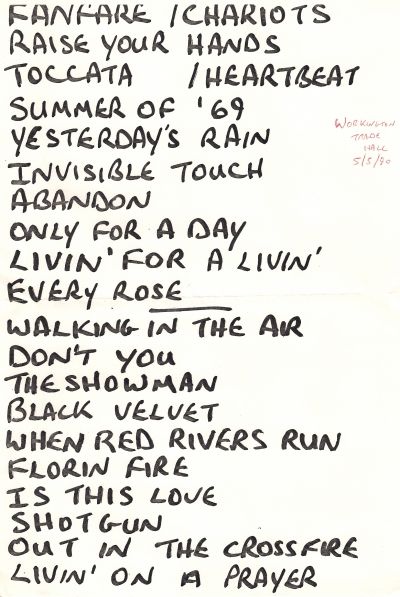 FANFARE / CHARIOTS
RAISE YOUR HANDS
TOCCATA / HEARTBEAT
SUMMER OF '69
YESTERDAY'S RAIN
WORKINGTON
TRADE
HALL
5/5/90
INVISIBLE TOUCH
ABANDON
ONLY FOR A DAY
LIVIN' FOR A LIVIN'
EVERY ROSE
WALKING IN THE AIR
DON'T YOU
THE SHOWMAN
BLACK VELVET
WHEN RED RIVERS RUN
FLORIN FIRE
IS THIS LOVE
SHOTGUN
OUT IN THE CROSSFIRE
LIVIN' ON A PRAYER